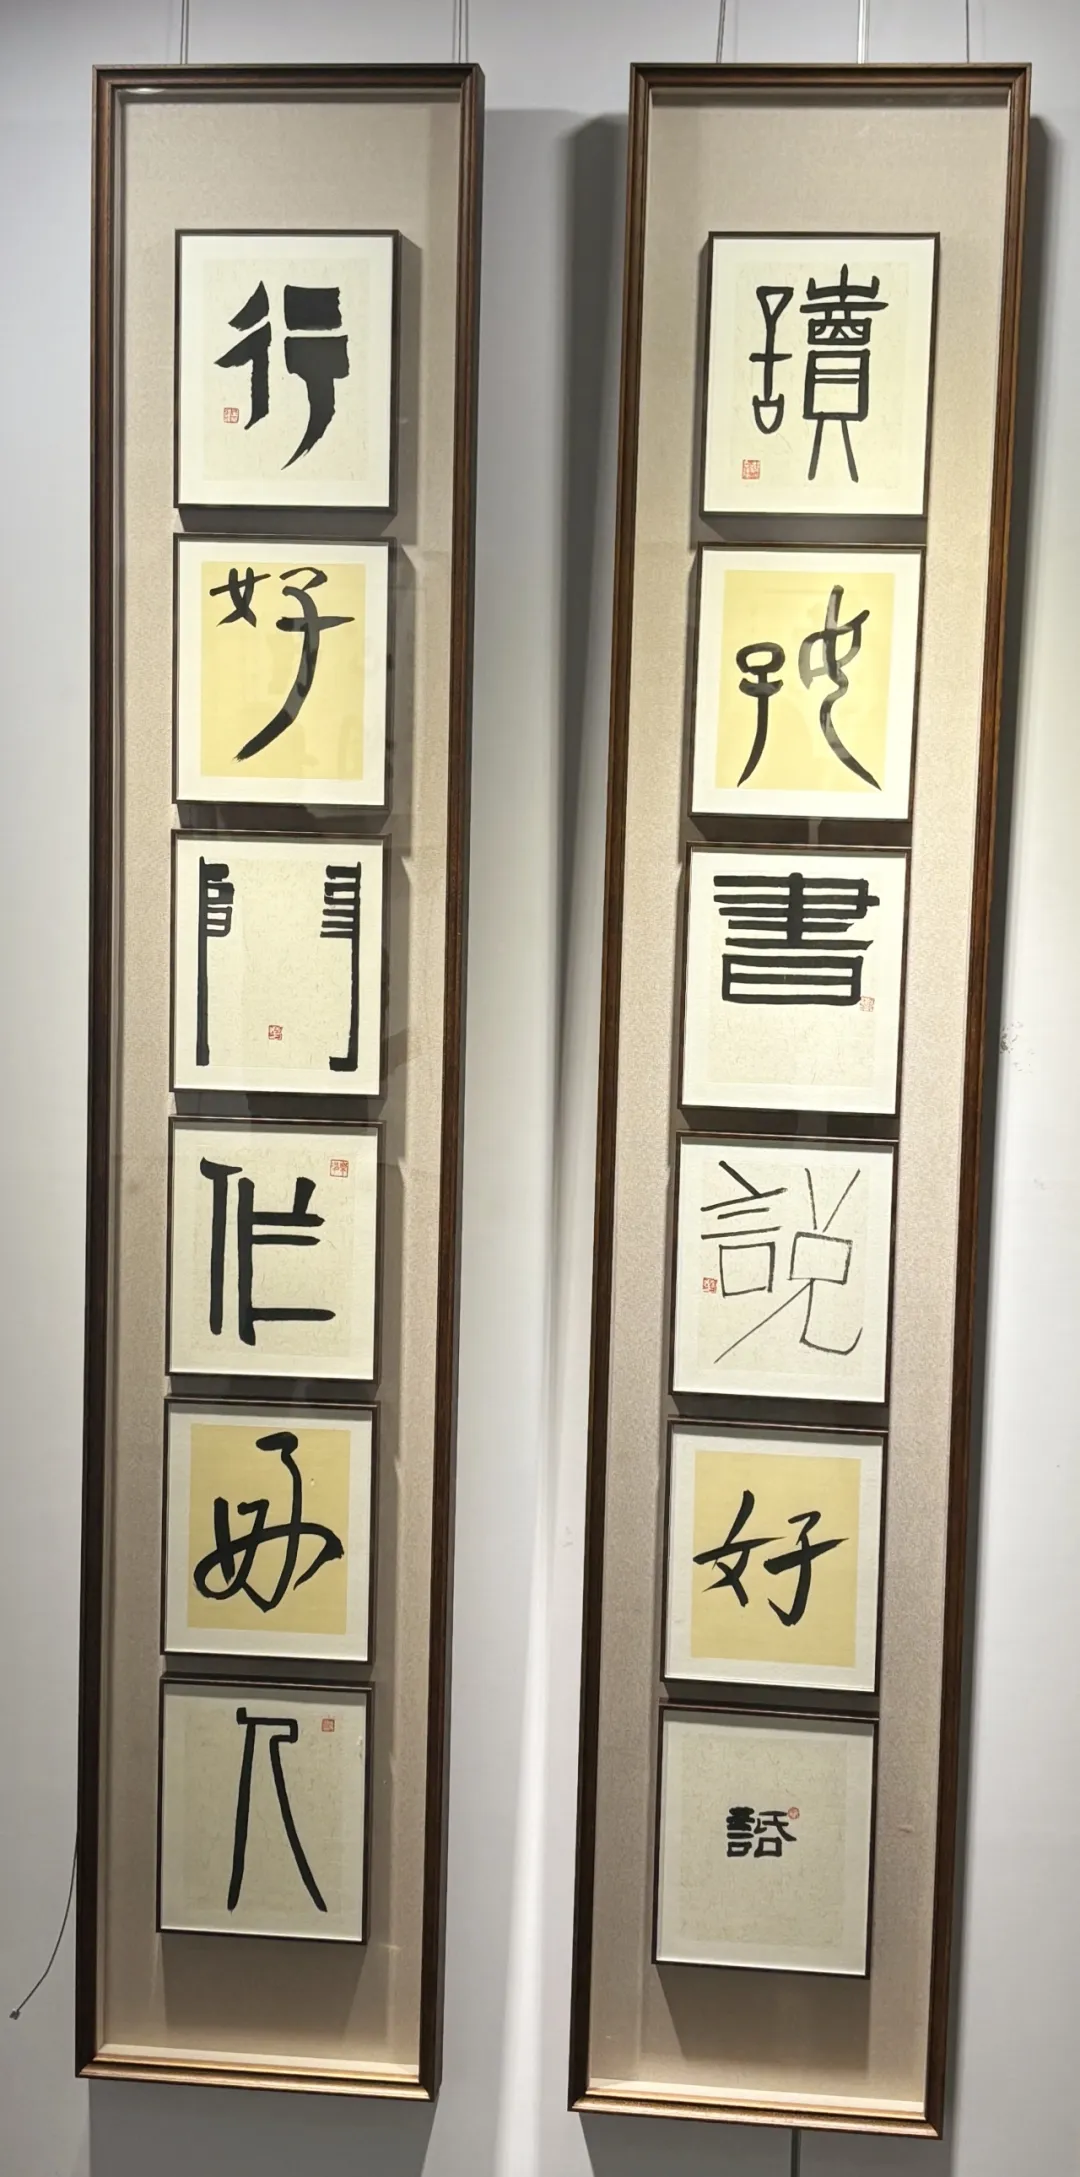 讀好書說好話
行好門作好人